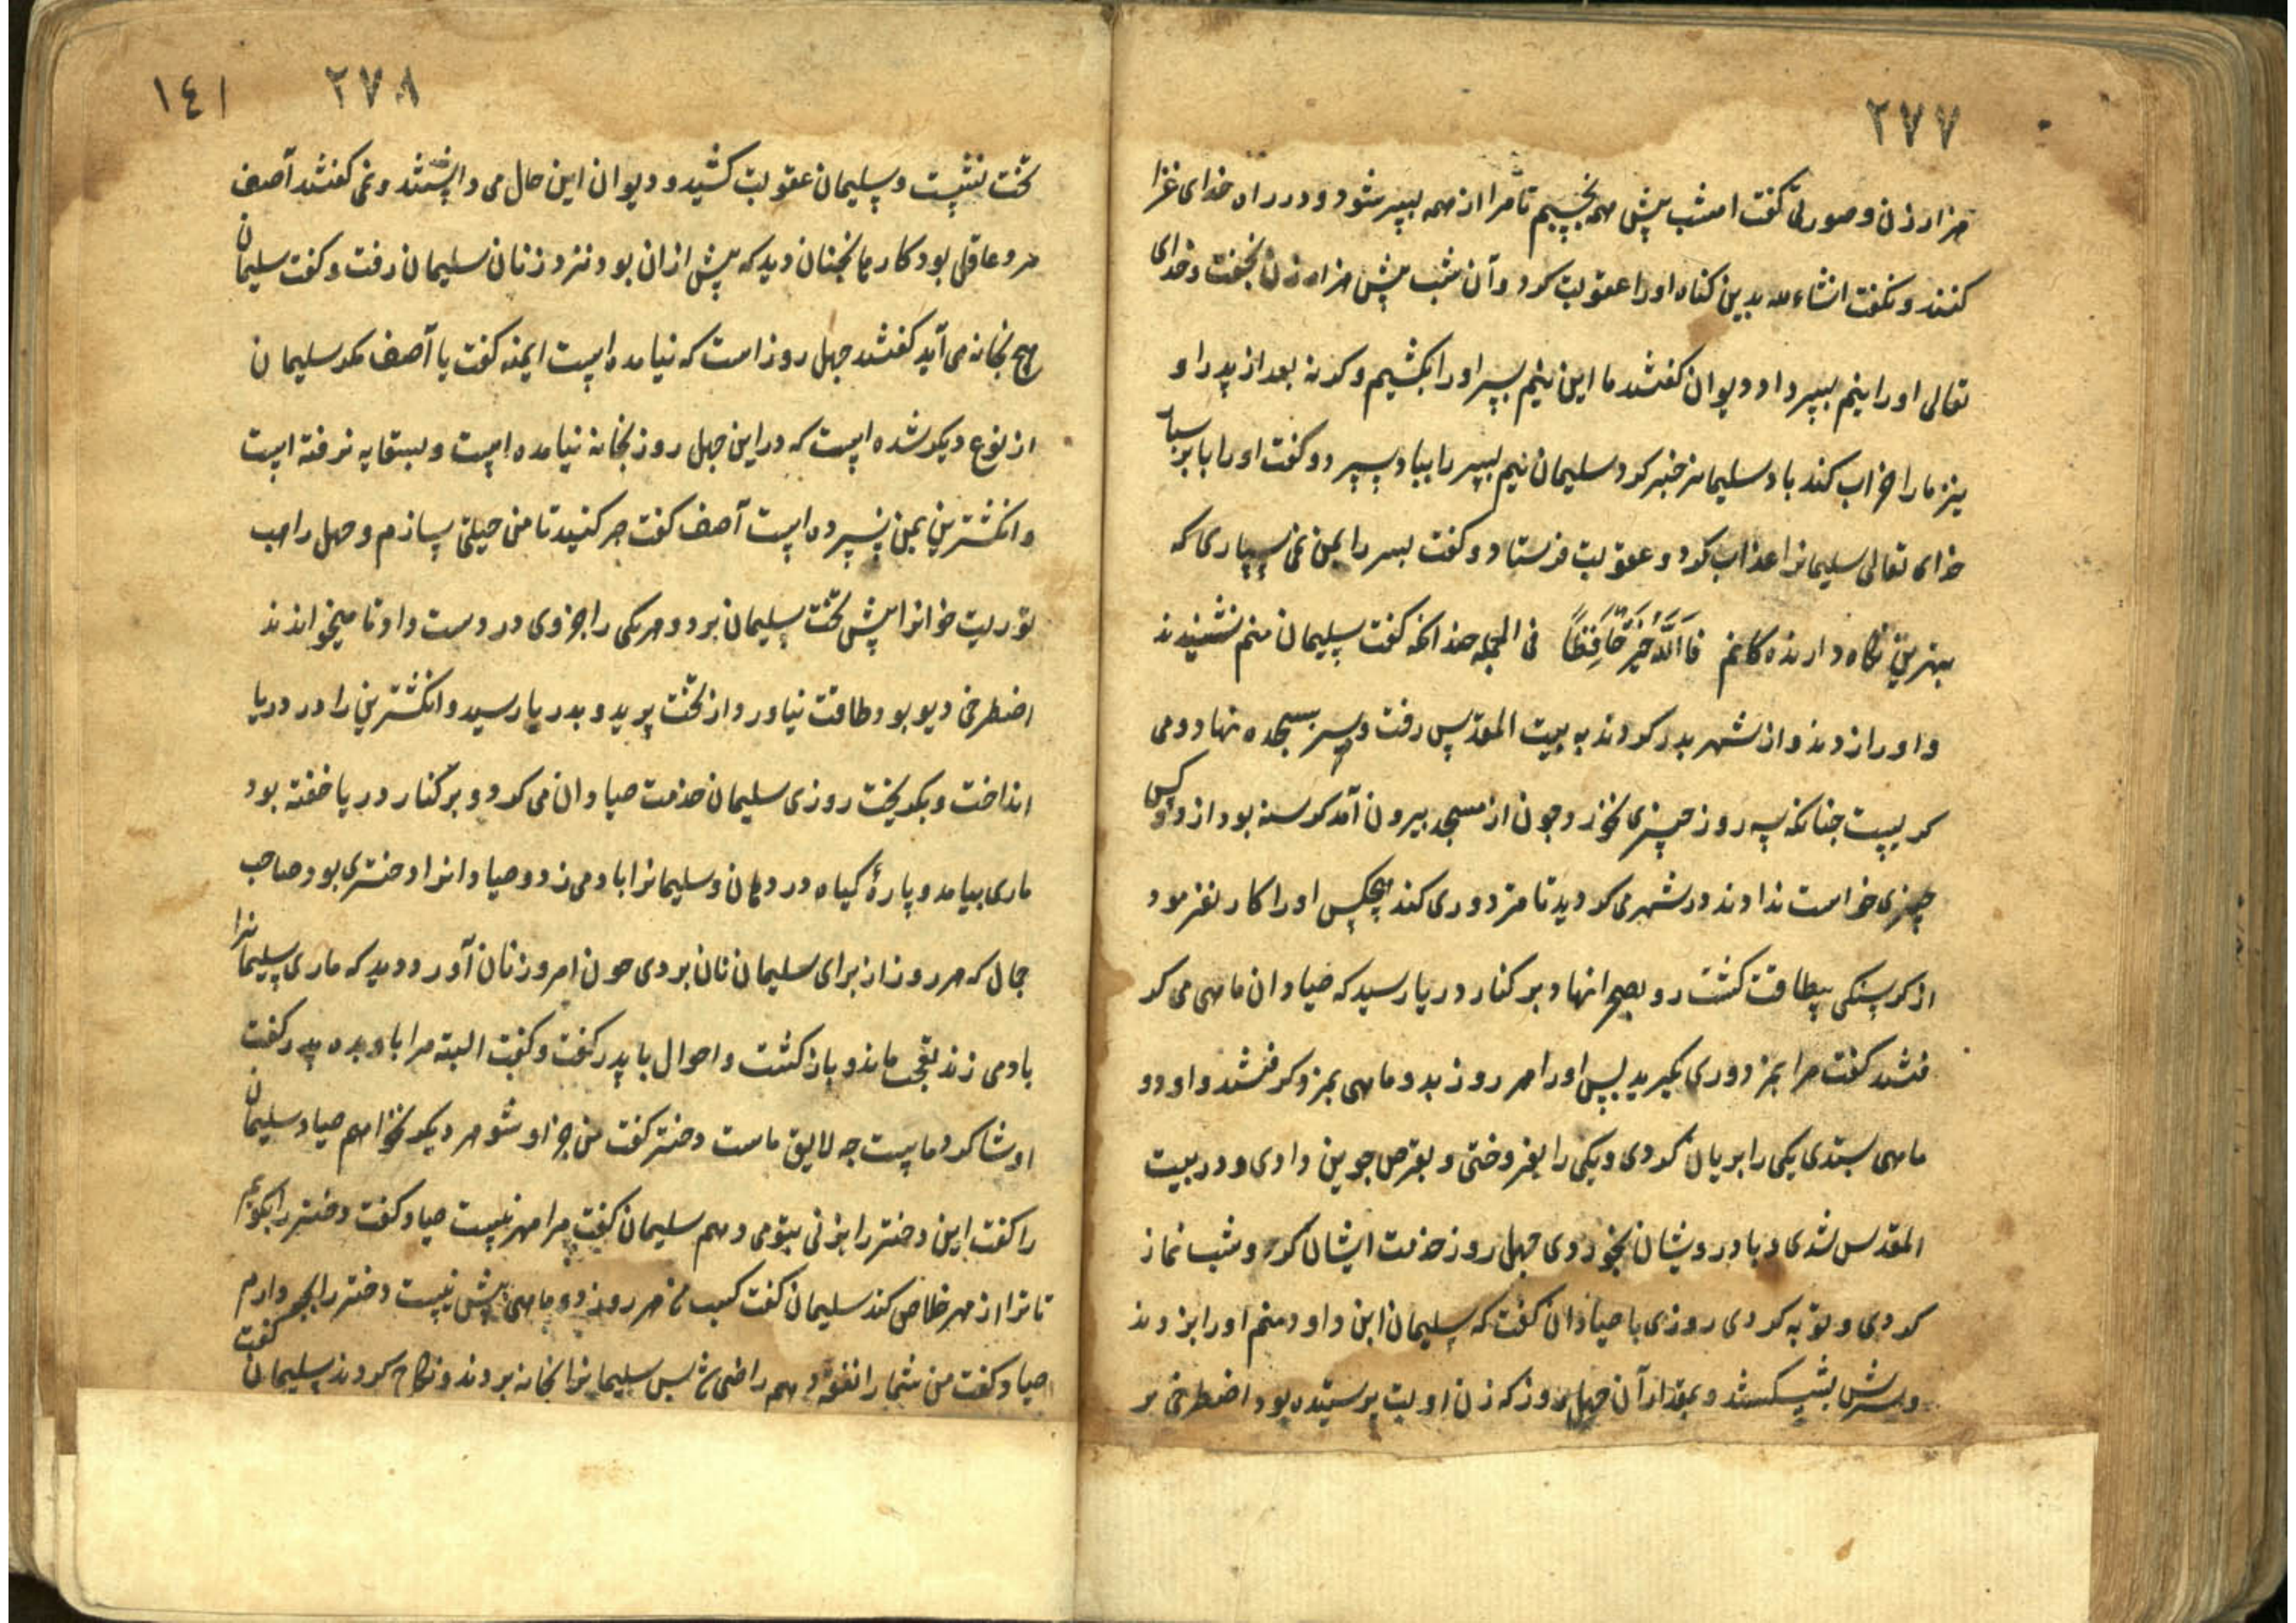 ٢٧٧
هزار زن و صورتی گفت امشب پیش همه بخسپم تا مرا از همه پسر شود و در راه خدای غزا
کنند و نگفت انشاءالله بدین گناه او را عقوبت کرد و آن شب پیش هزار زن بخفت و خدای
تعالی او را نیم پسر داد دیوان گفتند ما این نیم پسر او را بکشیم و کرنه بعد از پدر او
نیز ما را خراب کند باد سلیمانرا خبر کرد سلیمان نیم پسر را بباد سپرد و گفت او را بابر سپار
خدای تعالی سلیمانرا عذاب کرد و عقوبت فرستاد و گفت پسر را بمن نمی سپاری که
بهترین نگاه دارنده کانم فَاللَّهُ خَيْرٌ حَافِظًا فی الجمله چندانکه گفت سلیمان منم نشنیدند
و او را زدند و از شهر بدر کردند به بیت المقدس رفت و سر بسجده نهاد و می
کریست چنانکه سه روز چیزی نخورد چون از مسجد بیرون آمد کرسنه بود از هر کس
چیزی خواست ندادند در شهر می کردید تا مزدوری کند هیچکس او را کار نفرمود
از کرسنکی بیطاقت کشت رو بصحرا نهاد بر کنار دریا رسید که صیادان ماهی می کر
فتند گفت مرا بمزدوری بگیرید پس او را هر روز بدو ماهی بمزد کرفتند و او دو
ماهی ستدی یکی را بریان کردی و یکی را بفروختی و بقرص جوین دادی و در بیت
المقدس شدی و با درویشان بخوردی چهل روز خدمت ایشان کرد و شب نماز
کردی و توبه کردی روزی با صیادان گفت که سلیمان ابن داود منم او را بزدند
و سرش بشکستند و بمقدار آن چهل روز که زن او بت پرستیده بود اضطرخی بر
١٤١ ٢٧٨
تخت بنشست و سلیمان عقوبت کشید و دیوان این حال می دانستند و نمی گفتند آصف
مرد عاقل بود کارها نچنان دید که پیش از آن بود نزد زنان سلیمان رفت و گفت سلیمان
هیچ بخانه می آید گفتند چهل روز است که نیامده است ایمنه گفت یا آصف مکر سلیمان
از نوع دیکر شده است که در این چهل روز بخانه نیامده است و بسقایه نرفته است
و انکشترین بمن نسپرده است آصف گفت صبر کنید تا من حیلتی بسازم و چهل راهب
توریت خوانرا پیش تخت سلیمان برد و هر یکی را جزوی در دست داد تا میخواندند
اضطرخی دیو بود طاقت نیاورد از تخت پرید و بدریا رسید و انکشترین را در دریا
انداخت و بکریخت روزی سلیمان خدمت صیادان می کرد و بر کنار دریا خفته بود
ماری بیامد و پارهٔ کیاه در دهان و سلیمانرا باد می زد و صیادانرا دختری بود صاحب
جمال که هر روز از برای سلیمان نان بردی چون امروز نان آورد دید که ماری سلیمانرا
باد می زند بتعجب ماند و باز کشت و احوال با پدر گفت و گفت البته مرا باو بده پدر گفت
او شاکرد ماست چه لایق ماست دختر گفت من جز او شوهر دیکر نخواهم صیاد سلیمان
را گفت این دختر را بزنی بتو می دهم سلیمان گفت مرا مهر نیست صیاد گفت دختر را بکویم
تا ترا از مهر خلاص کند سلیمان گفت کسب من هر روز دو ماهی بیش نیست دختر را بچه دارم
صیاد گفت من شما را نفقه دهم راضی شد پس سلیمانرا بخانه بردند و نکاح کردند سلیمان گفت